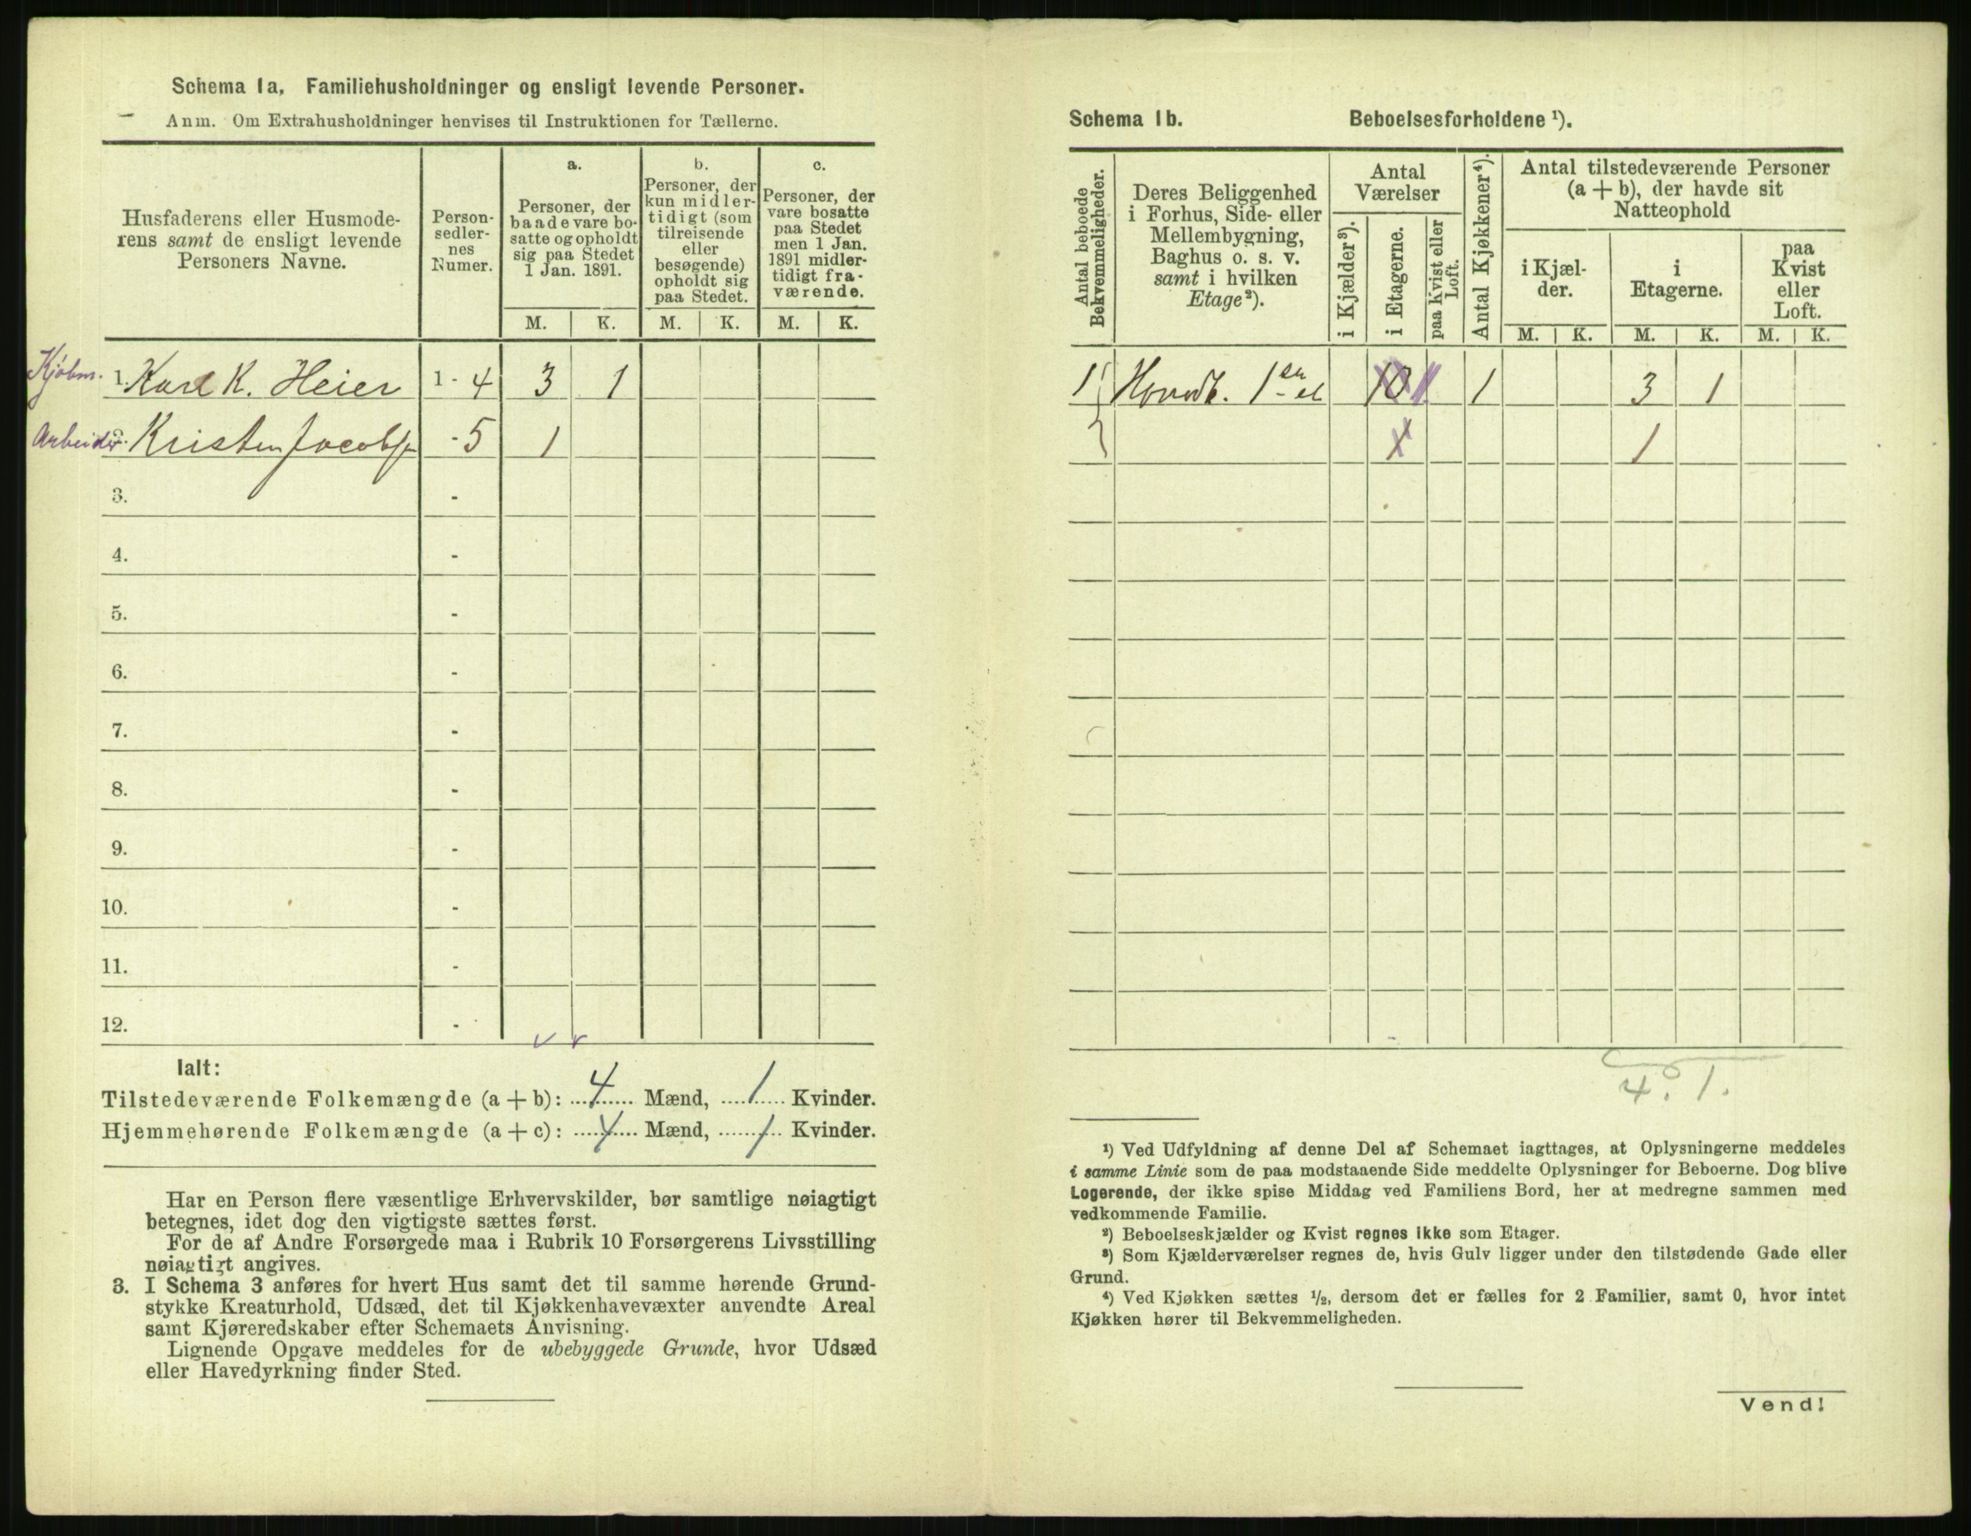 Schema 1a. Familiehusholdninger og ensligt levende Personer.
Anm. Om Extrahusholdninger henvises til Instruktionen for Tællerne.
Husfaderens eller Husmode-
rens samt de ensligt levende
Personers Navne.
Person-
sedler-
nes
Numer.
a.
Personer, der
baade vare bo-
satte og opholdt
sig paa Stedet
1 Jan. 1891.
b.
Personer, der
kun midler-
tidigt (som
tilreisende
eller
besøgende)
opholdt sig
paa Stedet.
c.
Personer, der
vare bosatte
paa Stedet
men 1 Jan.
1891 midler-
tidigt fra-
værende.
M. K. M. K. M. K.
Kjøbm. 1. Karl K. Heier 1 - 4 3 1
Arbeider 2. Kristen Jacobsen - 5 1
3. -
4. -
5. -
6. -
7. -
8. -
9. -
10. -
11. -
12. -
Ialt:
Tilstedeværende Folkemængde (a + b): 4 Mænd, 1 Kvinder.
Hjemmehørende Folkemængde (a + c): 4 Mænd, 1 Kvinder.
Har en Person flere væsentlige Erhvervskilder, bør samtlige nøiagtigt
betegnes, idet dog den vigtigste sættes først.
For de af Andre Forsørgede maa i Rubrik 10 Forsørgerens Livsstilling
nøiagtigt angives.
3. I Schema 3 anføres for hvert Hus samt det til samme hørende Grund-
stykke Kreaturhold, Udsæd, det til Kjøkkenhavevæxter anvendte Areal
samt Kjøreredskaber efter Schemaets Anvisning.
Lignende Opgave meddeles for de ubebyggede Grunde, hvor Udsæd
eller Havedyrkning finder Sted.
Schema 1b. Beboelsesforholdene ¹).
Antal beboede
Bekvemmeligheder.
Deres Beliggenhed
i Forhus, Side- eller
Mellembygning,
Baghus o. s. v.
samt i hvilken
Etage²).
Antal
Værelser
i Kjælder³).
i Etagerne.
paa Kvist eller
Loft.
Antal Kjøkkener⁴).
Antal tilstedeværende Personer
(a + b), der havde sit
Natteophold
i Kjæl-
der.
i
Etagerne.
paa
Kvist
eller
Loft.
M. K. M. K. M. K.
1 Hovedb. 1 en et 10 1 3 1
1
4. 1.
¹) Ved Udfyldning af denne Del af Schemaet iagttages, at Oplysningerne meddeles
i samme Linie som de paa modstaaende Side meddelte Oplysninger for Beboerne. Dog blive
Logerende, der ikke spise Middag ved Familiens Bord, her at medregne sammen med
vedkommende Familie.
²) Beboelseskjælder og Kvist regnes ikke som Etager.
³) Som Kjælderværelser regnes de, hvis Gulv ligger under den tilstødende Gade eller
Grund.
⁴) Ved Kjøkken sættes ½, dersom det er fælles for 2 Familier, samt 0, hvor intet
Kjøkken hører til Bekvemmeligheden.
Vend!